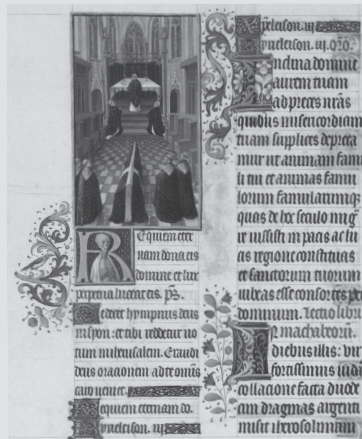 Requiem eter
nam dona eis
domine et lux
perpetua luceat eis. ps.
Te decet hympnus deus
in syon: et tibi reddetur uo
tum in iherusalem. Exaudi
deus orationem ad te omnis
caro ueniet.
Requiem eternam do.
Kyrieleison. iij.
Xpeleison. iij.
Kyrieleison. iij. oro.
Inclina domine
aurem tuam
ad preces nras
quibus misericordiam
tuam supplices depreca
mur ut animam famu
li tui et animas famu
lorum famularumq
quas de hoc seculo mig
re iussisti in pacis ac lu
cis regione constituas
et sanctorum tuorum
iubeas esse consortes per
dominum. Lectio libri
machabeorum.
In diebus illis: vir
fortissimus iudas
collacione facta duode
cim dragmas argenti
misit iherosolimam